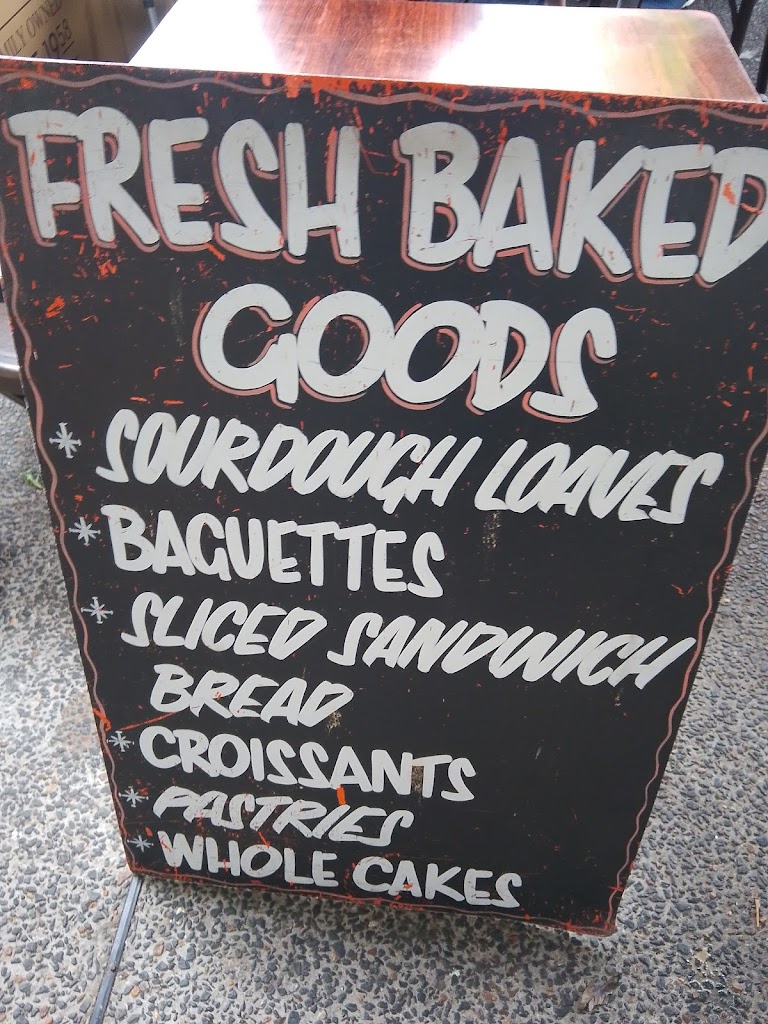 ILY OWNED
1958
FRESH BAKED
GOODS
* SOURDOUGH LOAVES
* BAGUETTES
* SLICED SANDWICH
BREAD
* CROISSANTS
* PASTRIES
* WHOLE CAKES